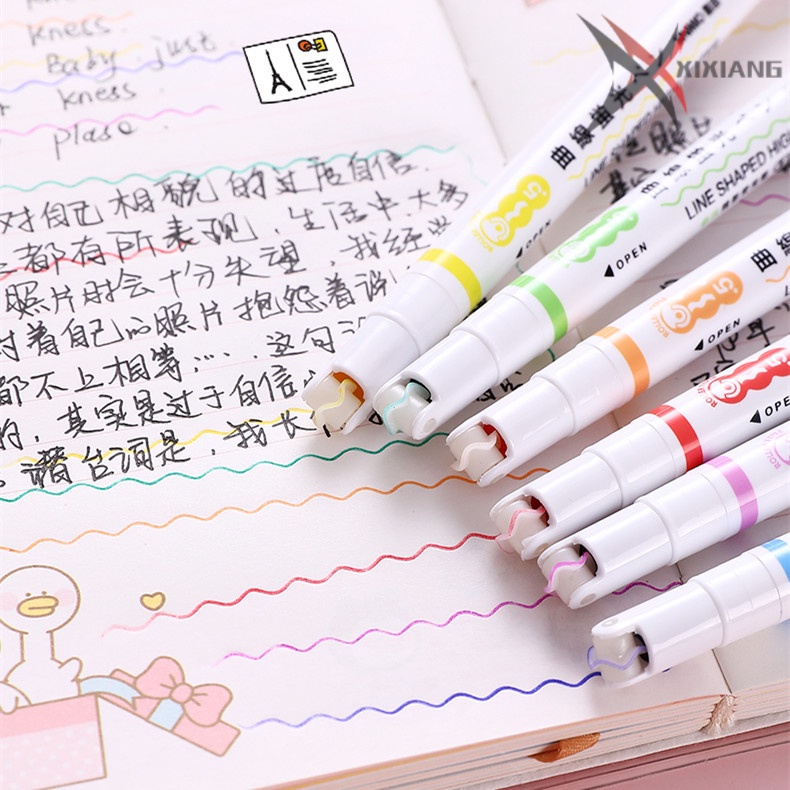 kness.
Baby just
kness
plase.
XIXIANG
对自己相貌的过度自信.
都有所表现,生活中,大多
照片时会十分失望,我经些
对着自己的照片抱怨着说
都不上相等....这句
的,其实是过于自信
。潜台词是,我长
曲線
LINE SHAPED
OPEN
LINE SHAPED HIGH
OPEN
曲線
OPEN
OPEN